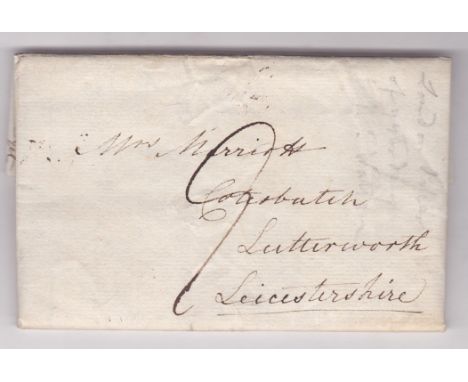 Mrs Marriott
Cotesbatch
Lutterworth
Leicestershire
9